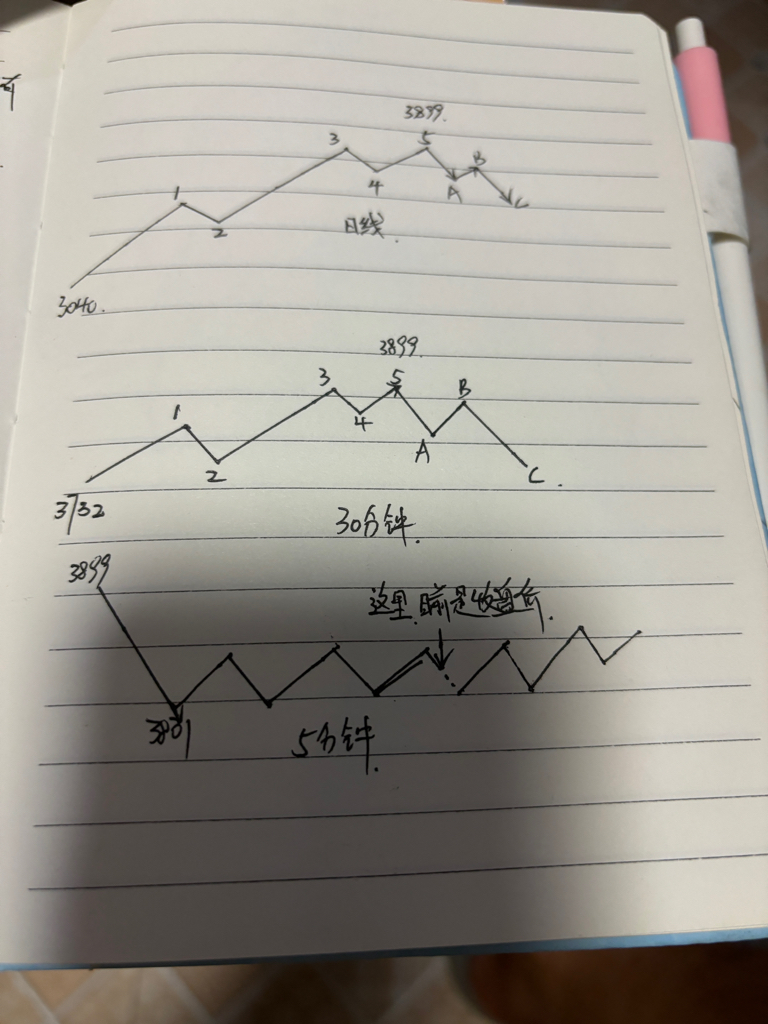 3899.
3 5 B
1 4 A C
2
日线.
3040.
3899.
3 5 B
1 4
2 A C.
3732
30分钟.
3899
这里,目前是收盘价.
3801
5分钟.